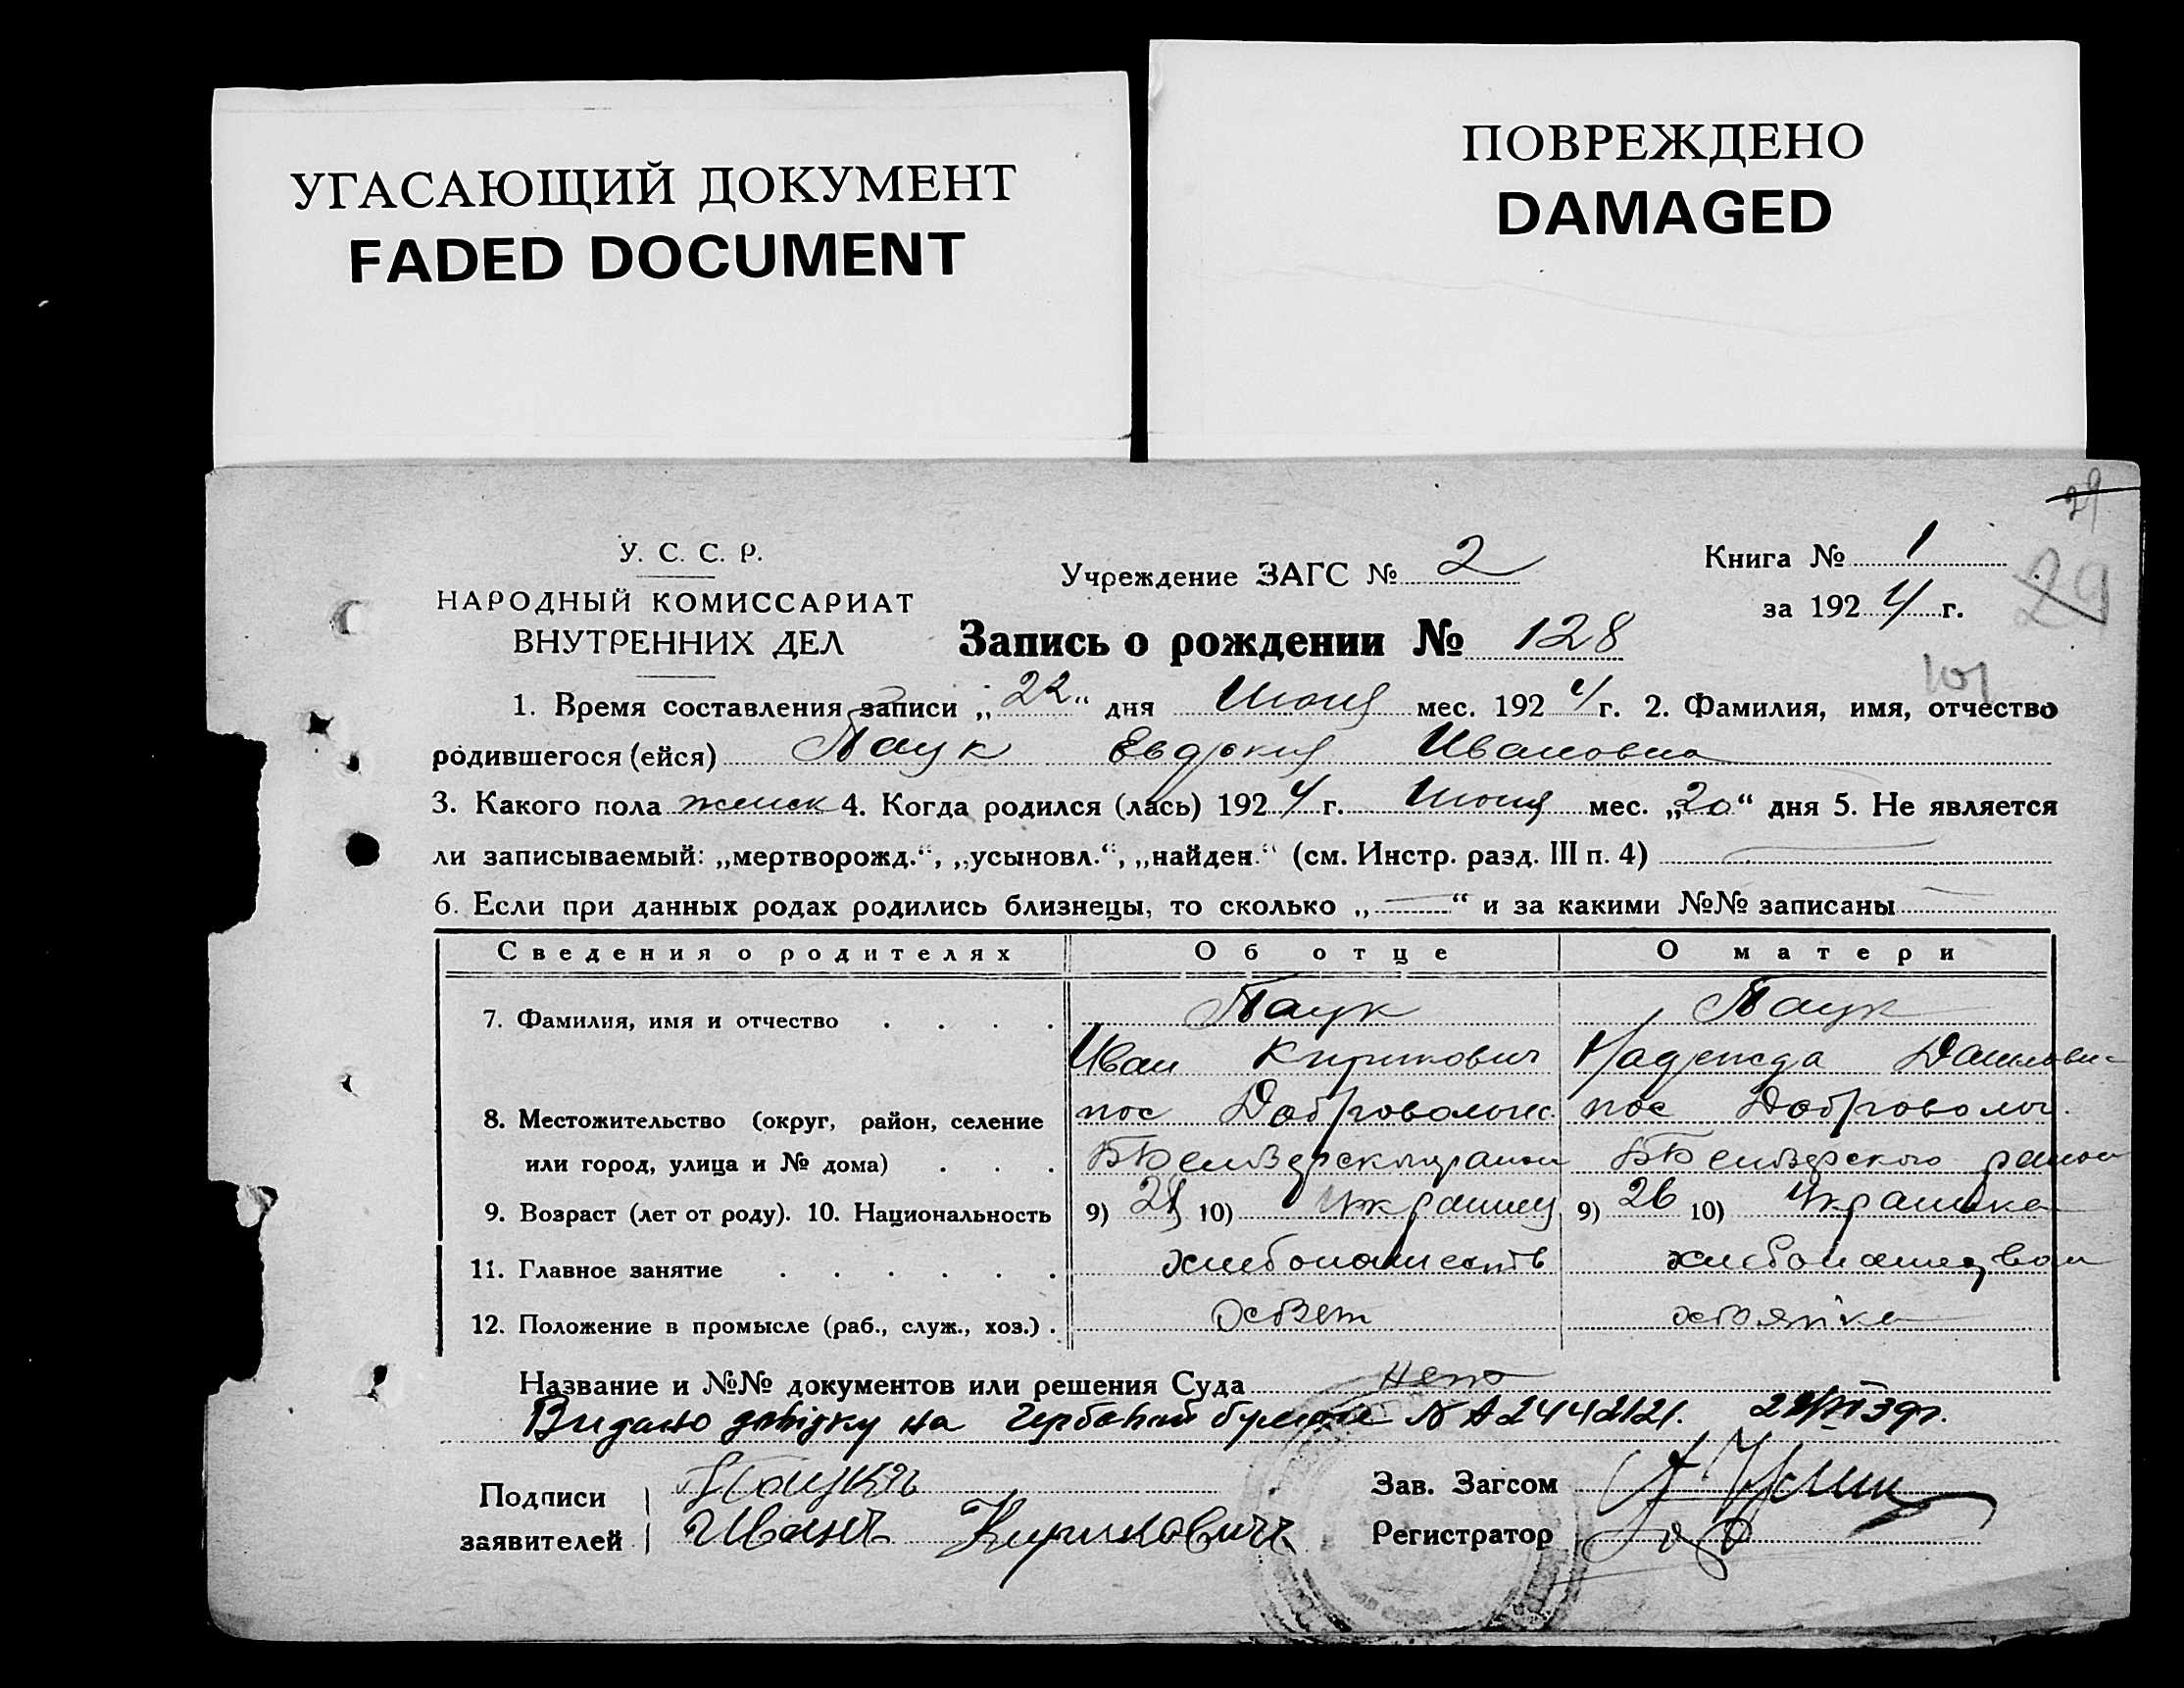 УГАСАЮЩИЙ ДОКУМЕНТ
FADED DOCUMENT
ПОВРЕЖДЕНО
DAMAGED
29
29
У. С. С. Р.
НАРОДНЫЙ КОМИССАРИАТ
ВНУТРЕННИХ ДЕЛ
Учреждение ЗАГС № 2
Книга № 1
за 1924 г.
Запись о рождении № 128
101
1. Время составления записи „22“ дня Июня мес. 1924 г. 2. Фамилия, имя, отчество
родившегося (ейся) Паук Евдокия Ивановна
3. Какого пола женск 4. Когда родился (лась) 1924 г. Июня мес. „20“ дня 5. Не является
ли записываемый: „мертворожд.“, „усыновл.“, „найден.“ (см. Инстр. разд. III п. 4)
6. Если при данных родах родились близнецы, то сколько „—“ и за какими №№ записаны —
Сведения о родителях Об отце О матери
7. Фамилия, имя и отчество . . . . Паук Паук
Иван Кирикович Надежда
8. Местожительство (округ, район, селение пос Доброволье. пос Доброволь.
или город, улица и № дома) . . .
9. Возраст (лет от роду). 10. Национальность 9) 10) Украинец 9) 26 10) Украинка
11. Главное занятие . . . . . .
12. Положение в промысле (раб., служ., хоз.) . хозяйка
Название и №№ документов или решения Суда нет
Видано довідку на гербовій бумазі № А2442121.
Подписи Паукъ
заявителей Иванъ Кириковичъ
Зав. Загсом
Регистратор